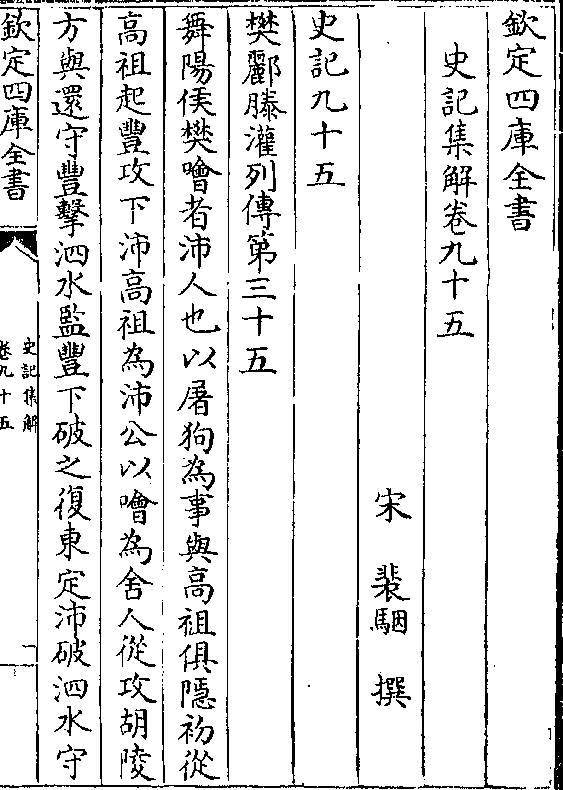 欽定四庫全書
史記集解卷九十五
宋 裴駰 撰
史記九十五
樊酈滕灌列傳第三十五
舞陽侯樊噲者沛人也以屠狗為事與高祖俱隱初從
高祖起豐攻下沛高祖為沛公以噲為舍人從攻胡陵
方與還守豐擊泗水監豐下破之復東定沛破泗水守
欽定四庫全書
史記集解
卷九十五
一